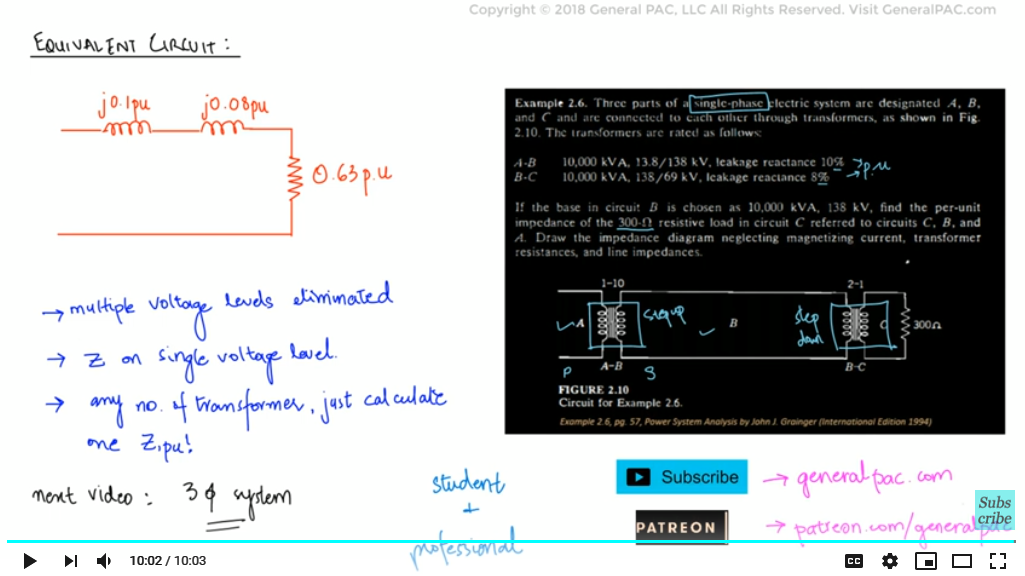 Copyright © 2018 General PAC, LLC All Rights Reserved. Visit GeneralPAC.com
EQUIVALENT CIRCUIT :
j0.1pu j0.08pu
0.63 p.u
→ multiple voltage levels eliminated
→ Z on single voltage level.
→ any no. of transformer, just calculate
one Z,pu!
next video : 3 ϕ system
Example 2.6. Three parts of a single-phase electric system are designated A, B,
and C and are connected to each other through transformers, as shown in Fig.
2.10. The transformers are rated as follows:
A-B 10,000 kVA, 13.8/138 kV, leakage reactance 10% → p.u
B-C 10,000 kVA, 138/69 kV, leakage reactance 8% →
If the base in circuit B is chosen as 10,000 kVA, 138 kV, find the per-unit
impedance of the 300-Ω resistive load in circuit C referred to circuits C, B, and
A. Draw the impedance diagram neglecting magnetizing current, transformer
resistances, and line impedances.
1-10 2-1
✓ A step up ✓ B step down C 300Ω
P A-B S B-C
FIGURE 2.10
Circuit for Example 2.6.
Example 2.6, pg. 57, Power System Analysis by John J. Grainger (International Edition 1994)
student
+
professional
Subscribe → generalpac.com
PATREON → patreon.com/generalpac
Subs
cribe
10:02 / 10:03
CC